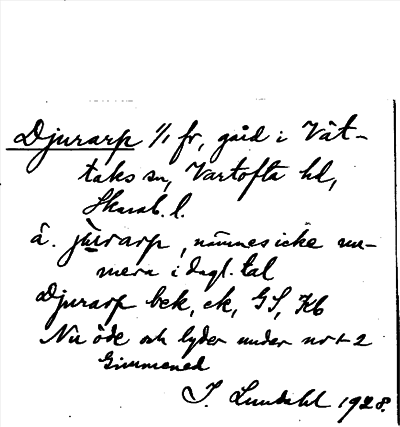 Djurarp 1/1 fr, gård i Vät-
taks sn, Vartofta hd,
Skarab. l.
å. jùrarp, nämnes icke nu-
mera i dagl. tal
Djurarp bek, ek, GS, Kb
Nu öde och lyder under nr 1-2
Gimmened
I. Lundahl 1928.